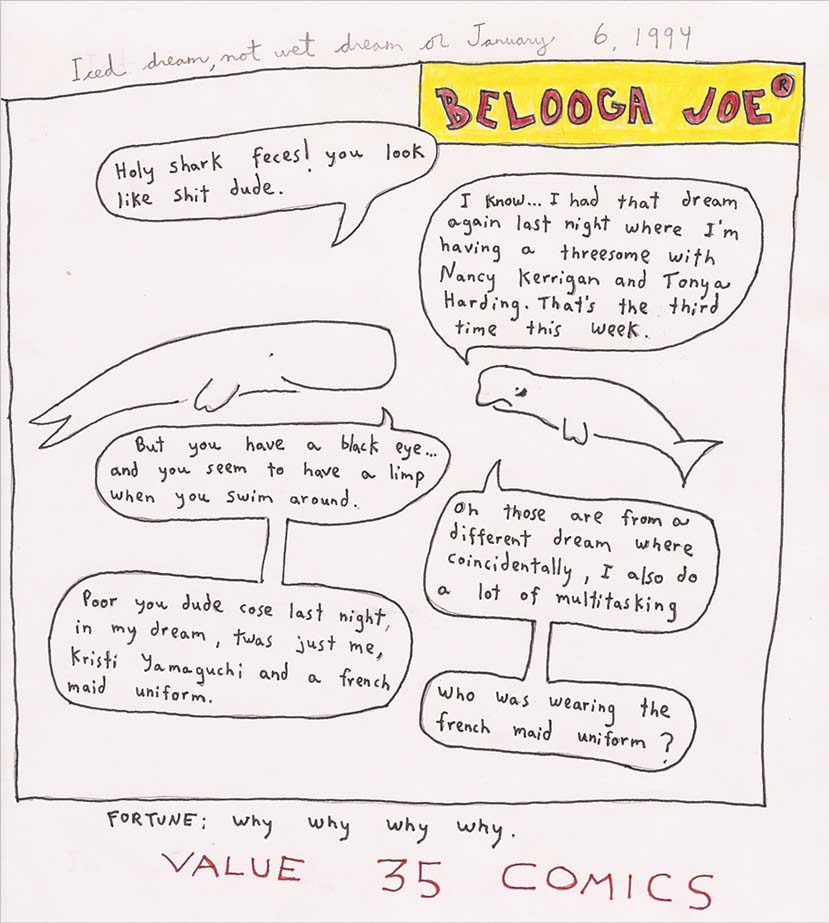 Iced dream, not wet dream or January 6, 1994
BELOOGA JOE®
Holy shark feces! you look
like shit dude.
I know... I had that dream
again last night where I'm
having a threesome with
Nancy Kerrigan and Tonya
Harding. That's the third
time this week.
But you have a black eye...
and you seem to have a limp
when you swim around.
Oh those are from a
different dream where
coincidentally, I also do
a lot of multitasking
Poor you dude cose last night,
in my dream, twas just me,
Kristi Yamaguchi and a french
maid uniform.
Who was wearing the
french maid uniform?
FORTUNE: why why why why.
VALUE 35 COMICS